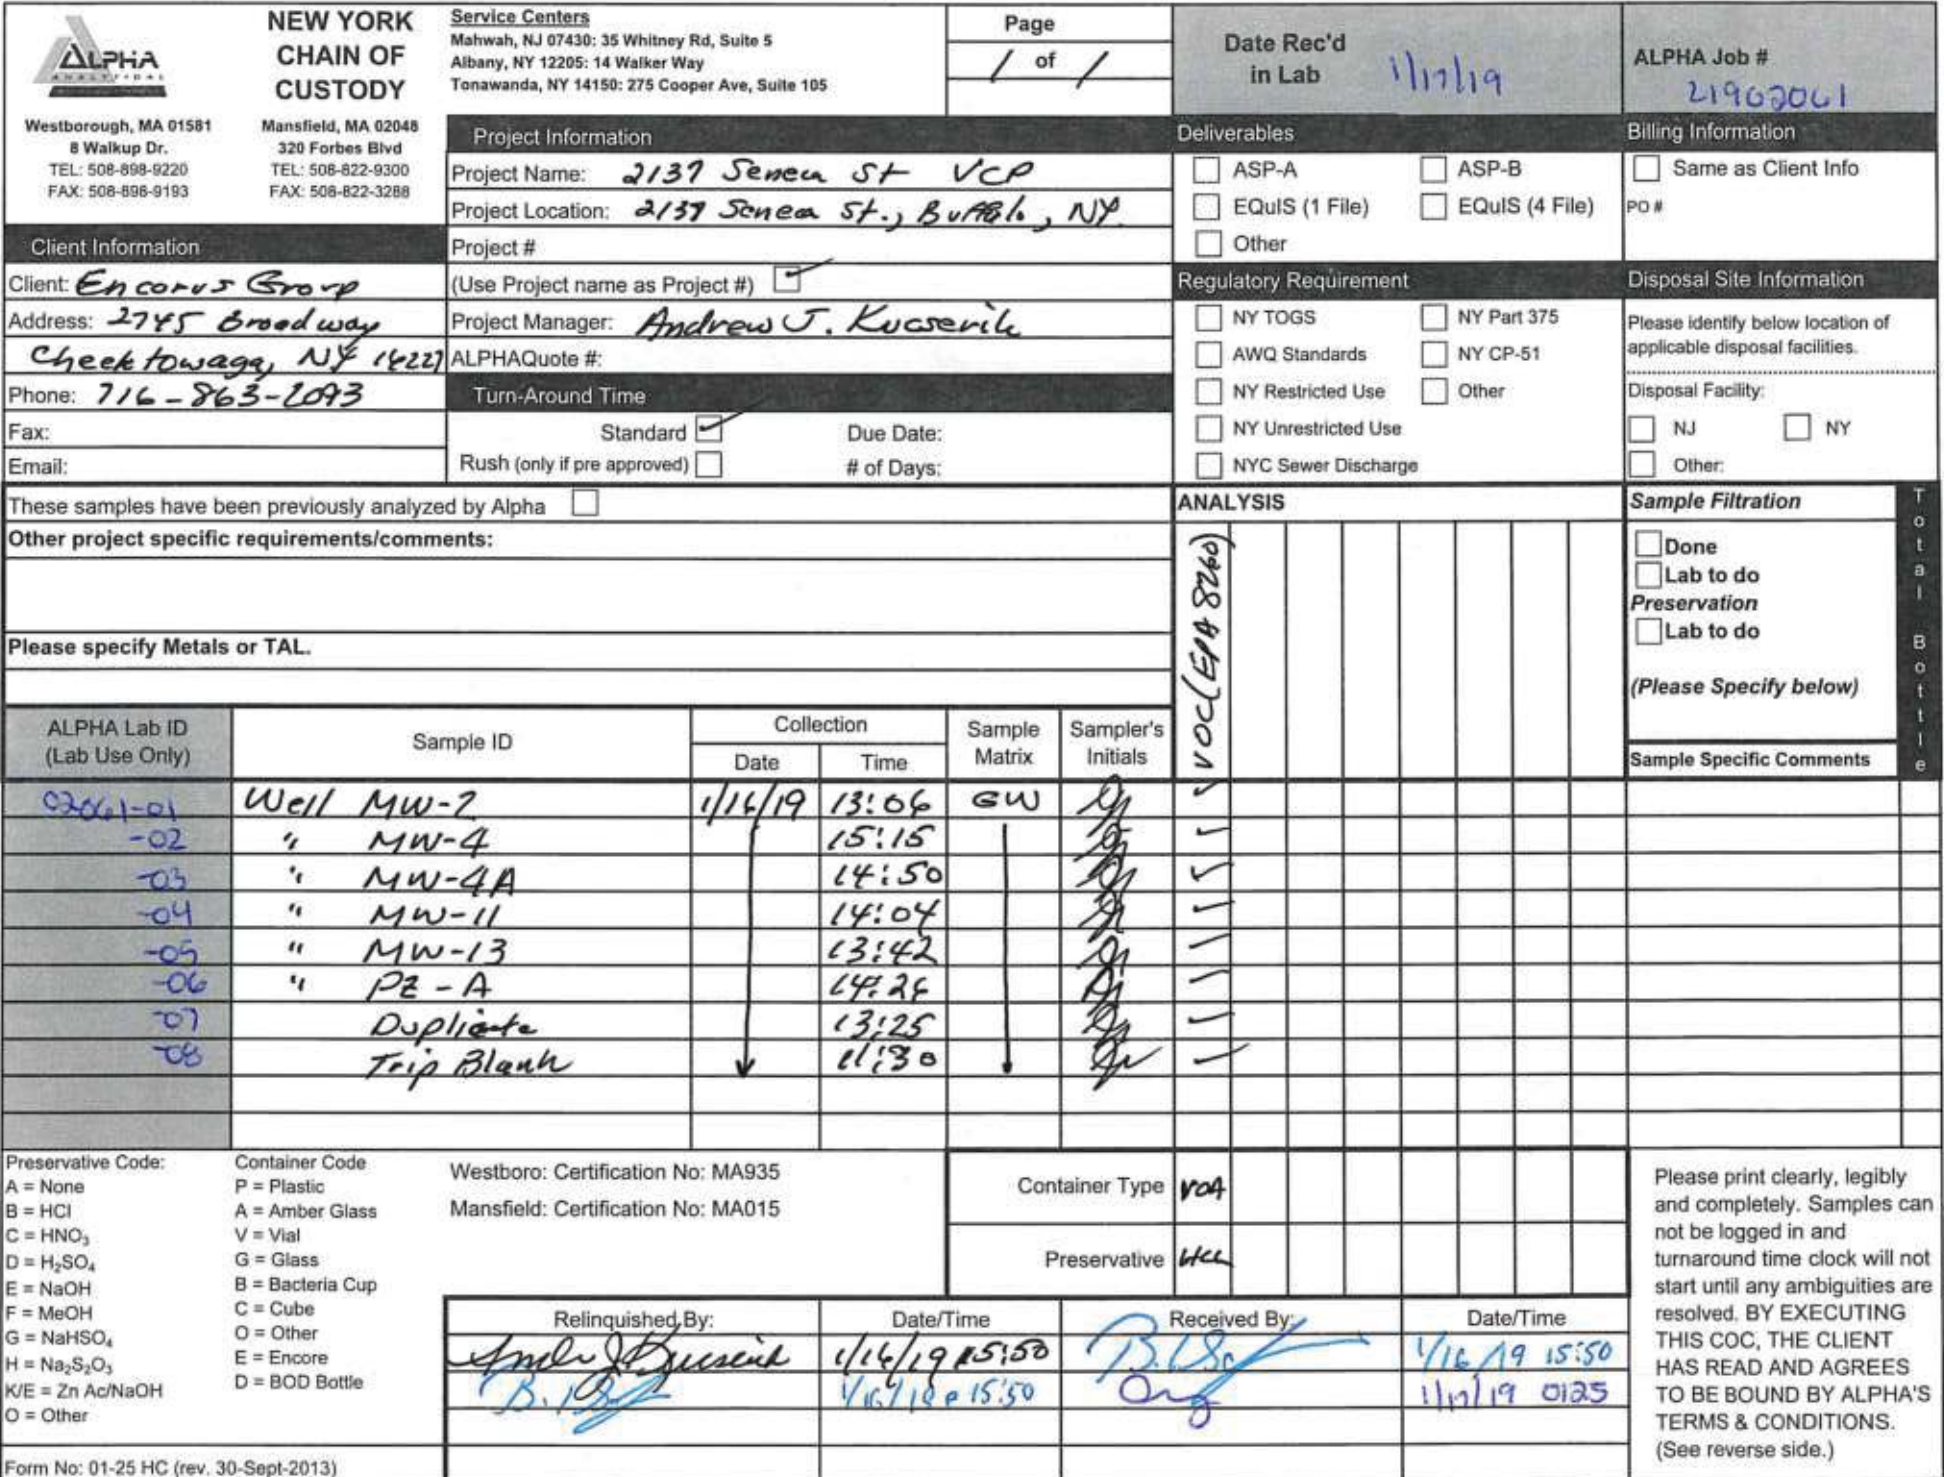 ALPHA
ANALYTICAL
Westborough, MA 01581
8 Walkup Dr.
TEL: 508-898-9220
FAX: 508-898-9193
NEW YORK
CHAIN OF
CUSTODY
Mansfield, MA 02048
320 Forbes Blvd
TEL: 508-822-9300
FAX: 508-822-3288
Service Centers
Mahwah, NJ 07430: 35 Whitney Rd, Suite 5
Albany, NY 12205: 14 Walker Way
Tonawanda, NY 14150: 275 Cooper Ave, Suite 105
Page
1 of 1
Date Rec'd
in Lab 1/17/19
ALPHA Job #
Client Information
Client: Encorus Group
Address: 2745 Broadway
Cheektowaga, NY 14227
Phone: 716-863-2093
Fax:
Email:
Project Information
Project Name: 2137 Seneca St VCP
Project Location: 2137 Seneca St., Buffalo, NY.
Project #
(Use Project name as Project #)
Project Manager: Andrew J. Kucserik
ALPHAQuote #:
Turn-Around Time
Standard Due Date:
Rush (only if pre approved) # of Days:
Deliverables
ASP-A ASP-B
EQuIS (1 File) EQuIS (4 File)
Other
Regulatory Requirement
NY TOGS NY Part 375
AWQ Standards NY CP-51
NY Restricted Use Other
NY Unrestricted Use
NYC Sewer Discharge
Billing Information
Same as Client Info
PO #
Disposal Site Information
Please identify below location of
applicable disposal facilities.
Disposal Facility:
NJ NY
Other:
These samples have been previously analyzed by Alpha
Other project specific requirements/comments:
Please specify Metals or TAL.
ANALYSIS
VOC (EPA 8260)
Sample Filtration
Done
Lab to do
Preservation
Lab to do
(Please Specify below)
Sample Specific Comments
Total Bottle
ALPHA Lab ID
(Lab Use Only)
Sample ID
Collection
Date Time
Sample
Matrix
Sampler's
Initials
02061-01 Well MW-2 1/16/19 13:06 GW ✓
-02 " MW-4 15:15 ✓
-03 " MW-4A 14:50 ✓
-04 " MW-11 14:04 ✓
-05 " MW-13 13:42 ✓
-06 " PZ-A 14:26 ✓
-07 Duplicate 13:25 ✓
-08 Trip Blank 11:30 ✓
Preservative Code:
A = None
B = HCl
C = HNO₃
D = H₂SO₄
E = NaOH
F = MeOH
G = NaHSO₄
H = Na₂S₂O₃
K/E = Zn Ac/NaOH
O = Other
Container Code
P = Plastic
A = Amber Glass
V = Vial
G = Glass
B = Bacteria Cup
C = Cube
O = Other
E = Encore
D = BOD Bottle
Westboro: Certification No: MA935
Mansfield: Certification No: MA015
Container Type VOA
Preservative HCL
Relinquished By: Date/Time Received By: Date/Time
1/16/19 15:50 1/16/19 15:50
15:50 1/17/19 0125
Please print clearly, legibly
and completely. Samples can
not be logged in and
turnaround time clock will not
start until any ambiguities are
resolved. BY EXECUTING
THIS COC, THE CLIENT
HAS READ AND AGREES
TO BE BOUND BY ALPHA'S
TERMS & CONDITIONS.
(See reverse side.)
Form No: 01-25 HC (rev. 30-Sept-2013)